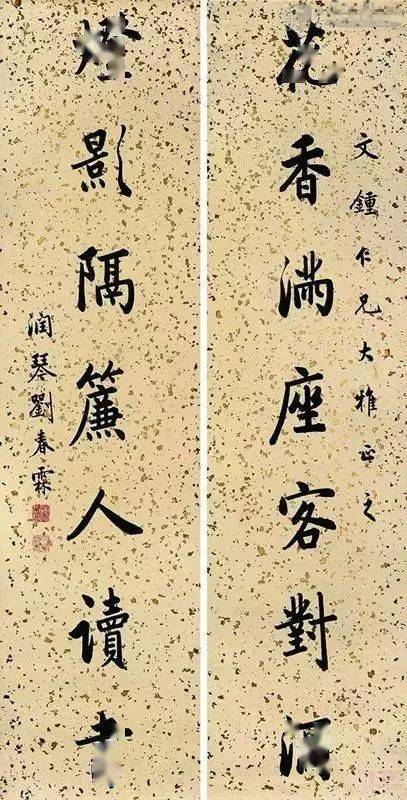 文鍾仁兄大雅正之
花香滿座客對
燈影隔簾人讀
潤琴劉春霖